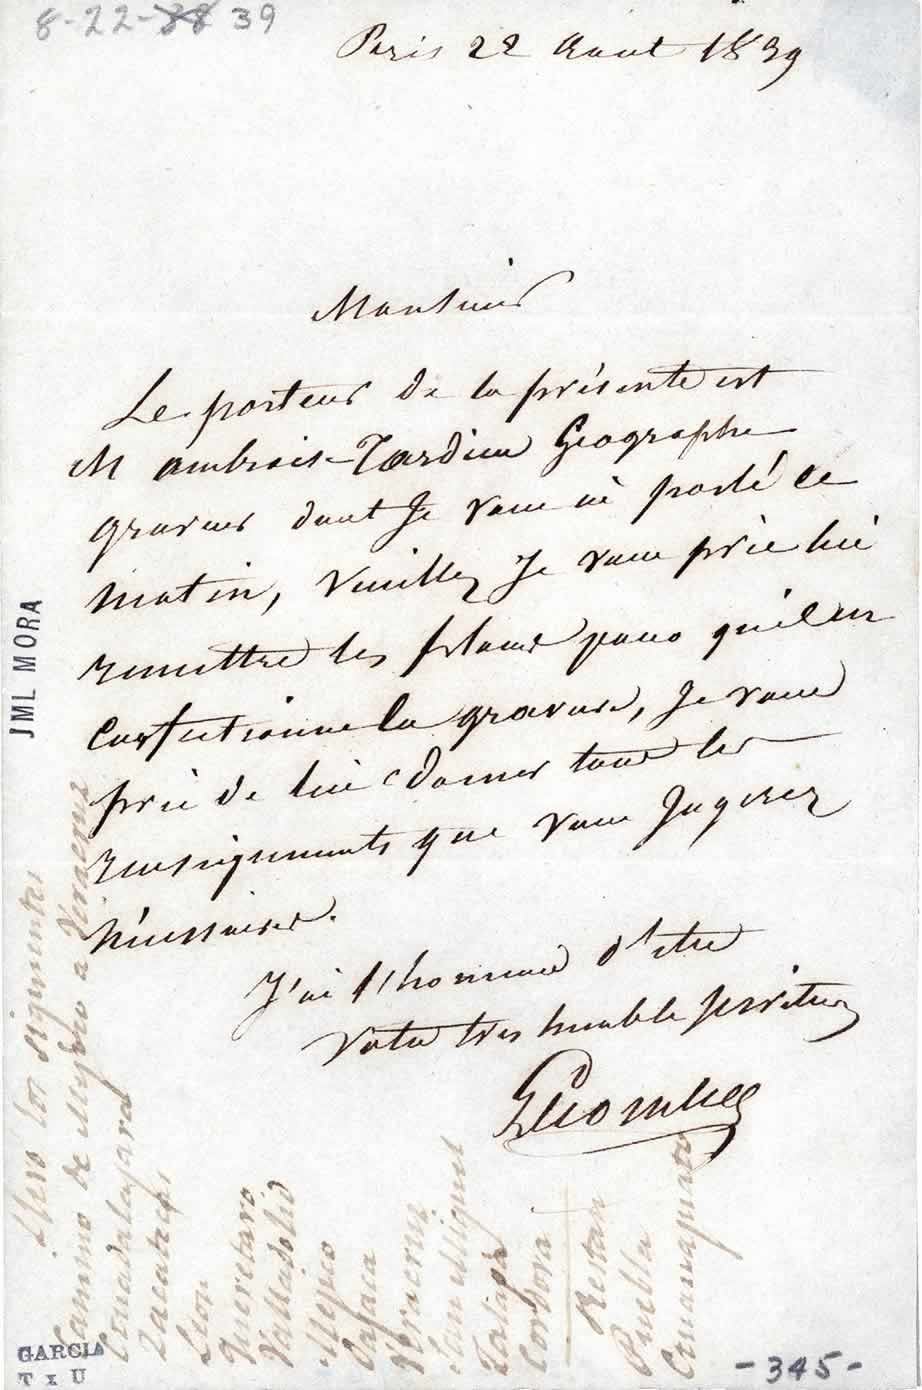 8-22-38 39
Paris 22 Aout 1839
Monsieur
Le porteur de la présente est
M ambrois-Tardieu Géographe
graveur dont Je vous ai parlé ce
matin, veuillez Je vous prie lui
remettre les plans pour qu'il en
confectionne la gravure, Je vous
prie de lui donner tous les
renseignements que vous Jugerez
nécessaires.
J'ai l'honneur d'etre
Votre tres humble serviteur
JML MORA
Llevo los siguientes
Camino de Mejico a Veracruz
Guadalajara
Zacatecas
Leon
Queretaro
Valladolid
Mejico
Oajaca
Veracruz
San Miguel
Jalapa
Cordova
Restan
Puebla
Guanajuato
GARCIA
T x U
-345-